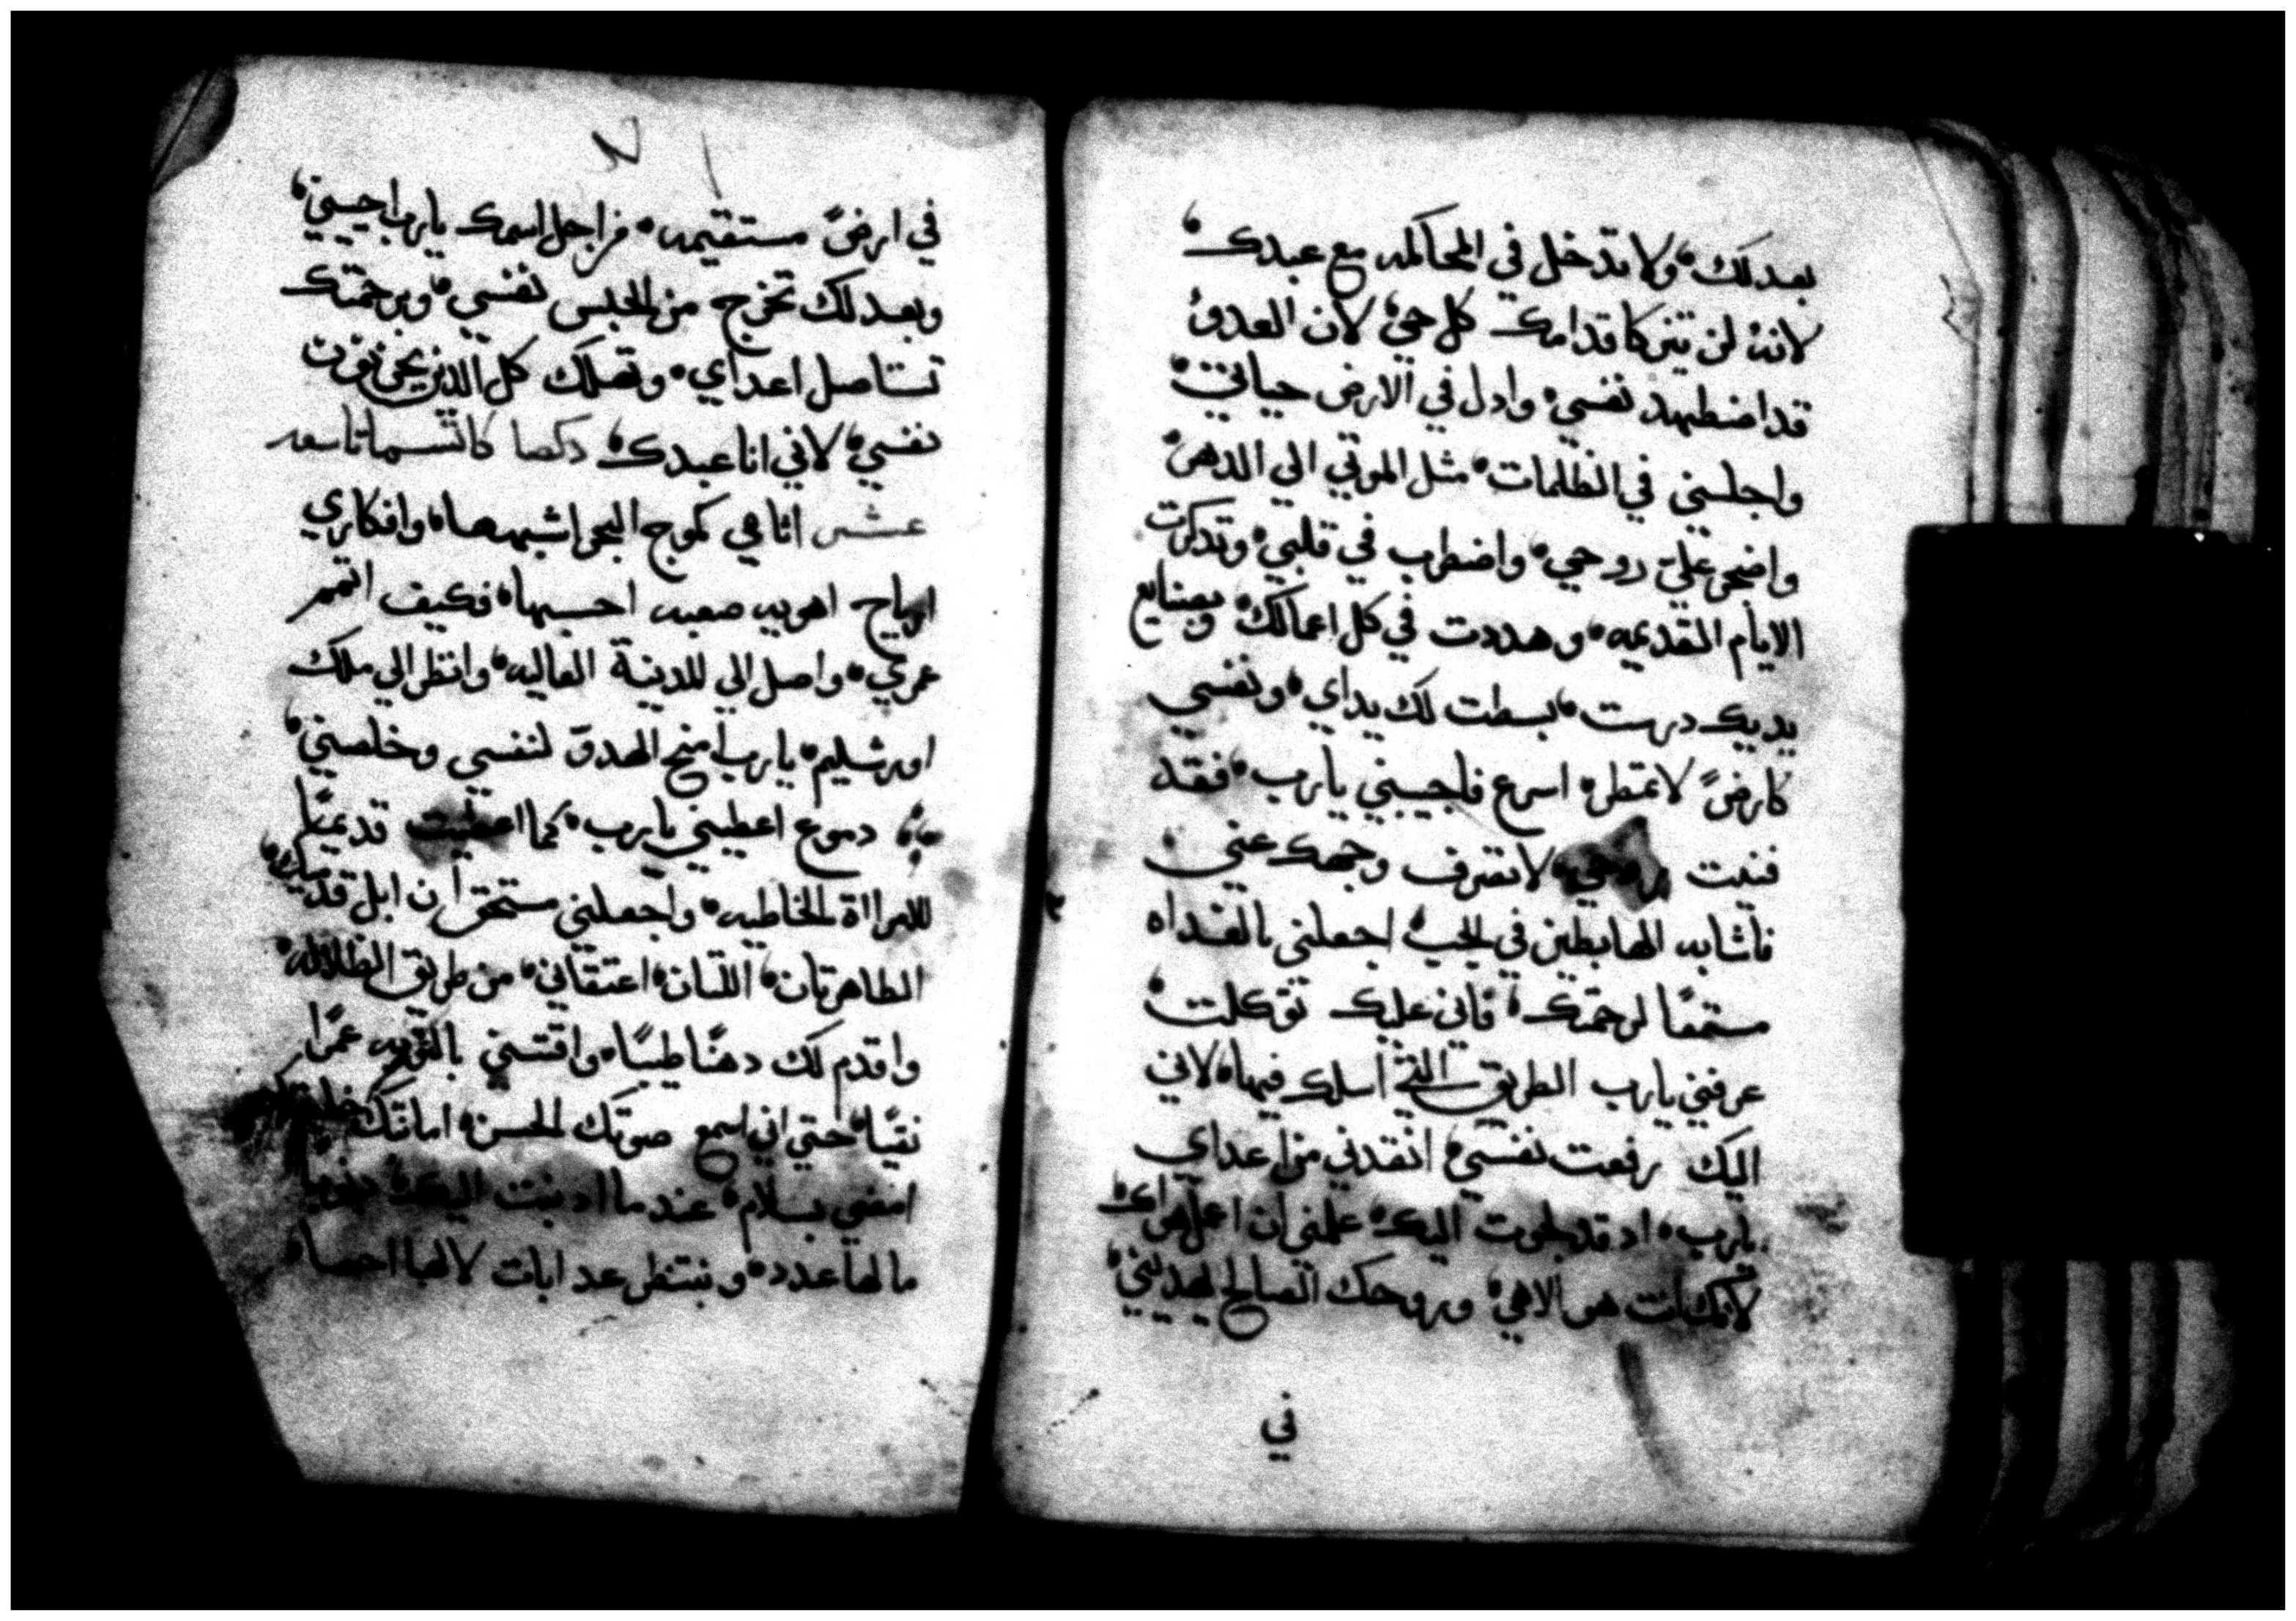 بعدلك ولا تدخل في المحاكمه مع عبدك
لانه لن يتزكا قدامك كل حي لان العدو
قد اضطهد نفسي وادل في الارض حياتي
واجلسني في الظلمات مثل الموتي الي الدهر
واضجر علي روحي واضطرب في قلبي وتدكرت
الايام القديمه وهددت في كل اعمالك وبصنايع
يديك درست بسطت لك يداي ونفسي
كارضً لا تمطر اسرع فاجيبني يارب فقد
فنيت روحي لا تصرف وجهك عني
فاشابه الهابطين في الجب اجعلني بالغداه
مستمعًا لرحمتك فاني عليك توكلت
عرفني يارب الطريق التي اسلك فيها لاني
اليك رفعت نفسي انقدني من اعداي
يارب اد قد لجوت اليك علمني ان اعمل هواك
لانك انت هو الاهي وروحك الصالح يهديني
في
في ارضً مستقيمه من اجل اسمك يارب احييني
وبعدلك تخرج من الحبس نفسي وبرحمتك
تستاصل اعداي وتهلك كل الدين يحزنون
نفسي لاني انا عبدك دكصا كانسما تاسعه
عشر اثامي كموج البحر اشبهها وافكاري
ارياح اهويه صعبه احسبها فكيف اتمم
عمري واصل الي المدينة العاليه وانظر الي ملك
اورشليم يارب امنح الهدو لنفسي وخلصني
دموع اعطيني يارب كما اعطيت قديمًا
للمرااة الخاطيه واجعلني مستحق ان ابل قدميك
الطاهرتان اللتان اعتقاني من طريق الظلاله
واقدم لك دهنًا طيبًا واقتني بالتوبه عمرًا
نقيًا حتي اني اسمع صوتك الحسن امانتك خلصتك
امضي بسلام عندما ادنبت اليك دنوبا
ما لها عدد وننتظر عدابات لا لها احصا